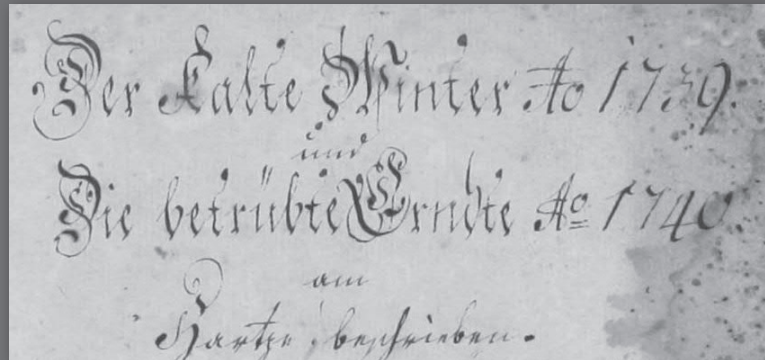 Der Kalte Winter Ao 1739.
und
Die betrübte Erndte Ao 1740
am
Hartze beschrieben.